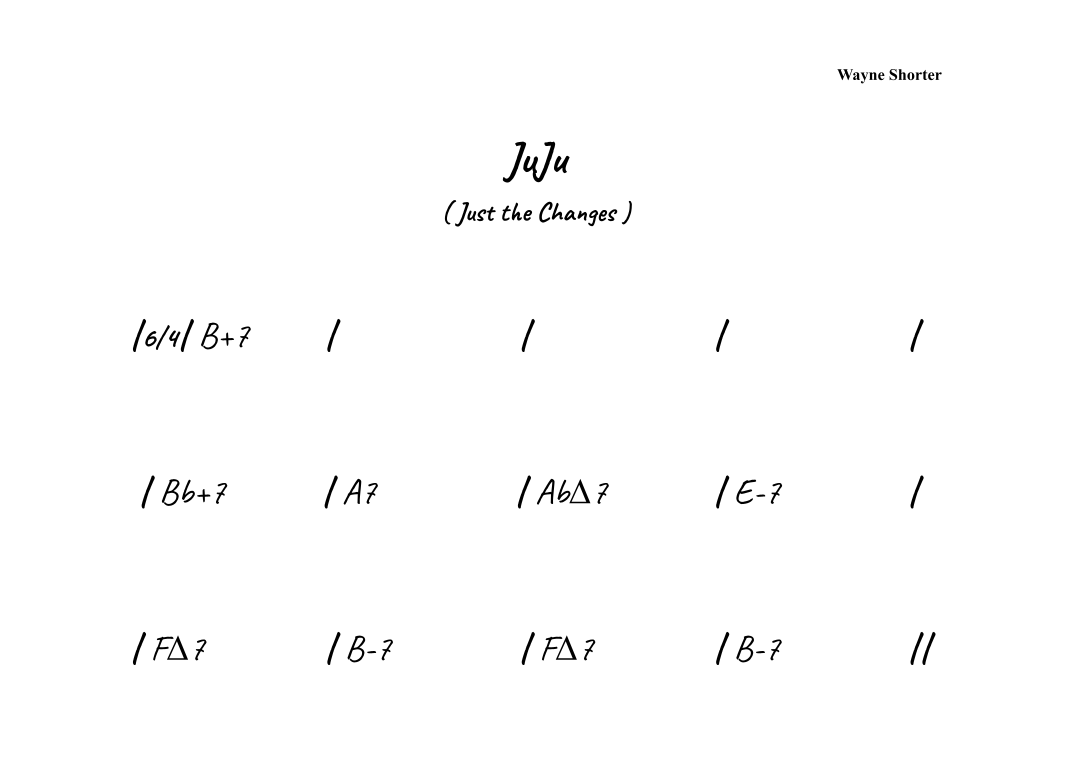 Wayne Shorter
JuJu
( Just the Changes )
|6/4| B+7 | | | |
| Bb+7 | A7 | Ab∆7 | E-7 |
| F∆7 | B-7 | F∆7 | B-7 ||